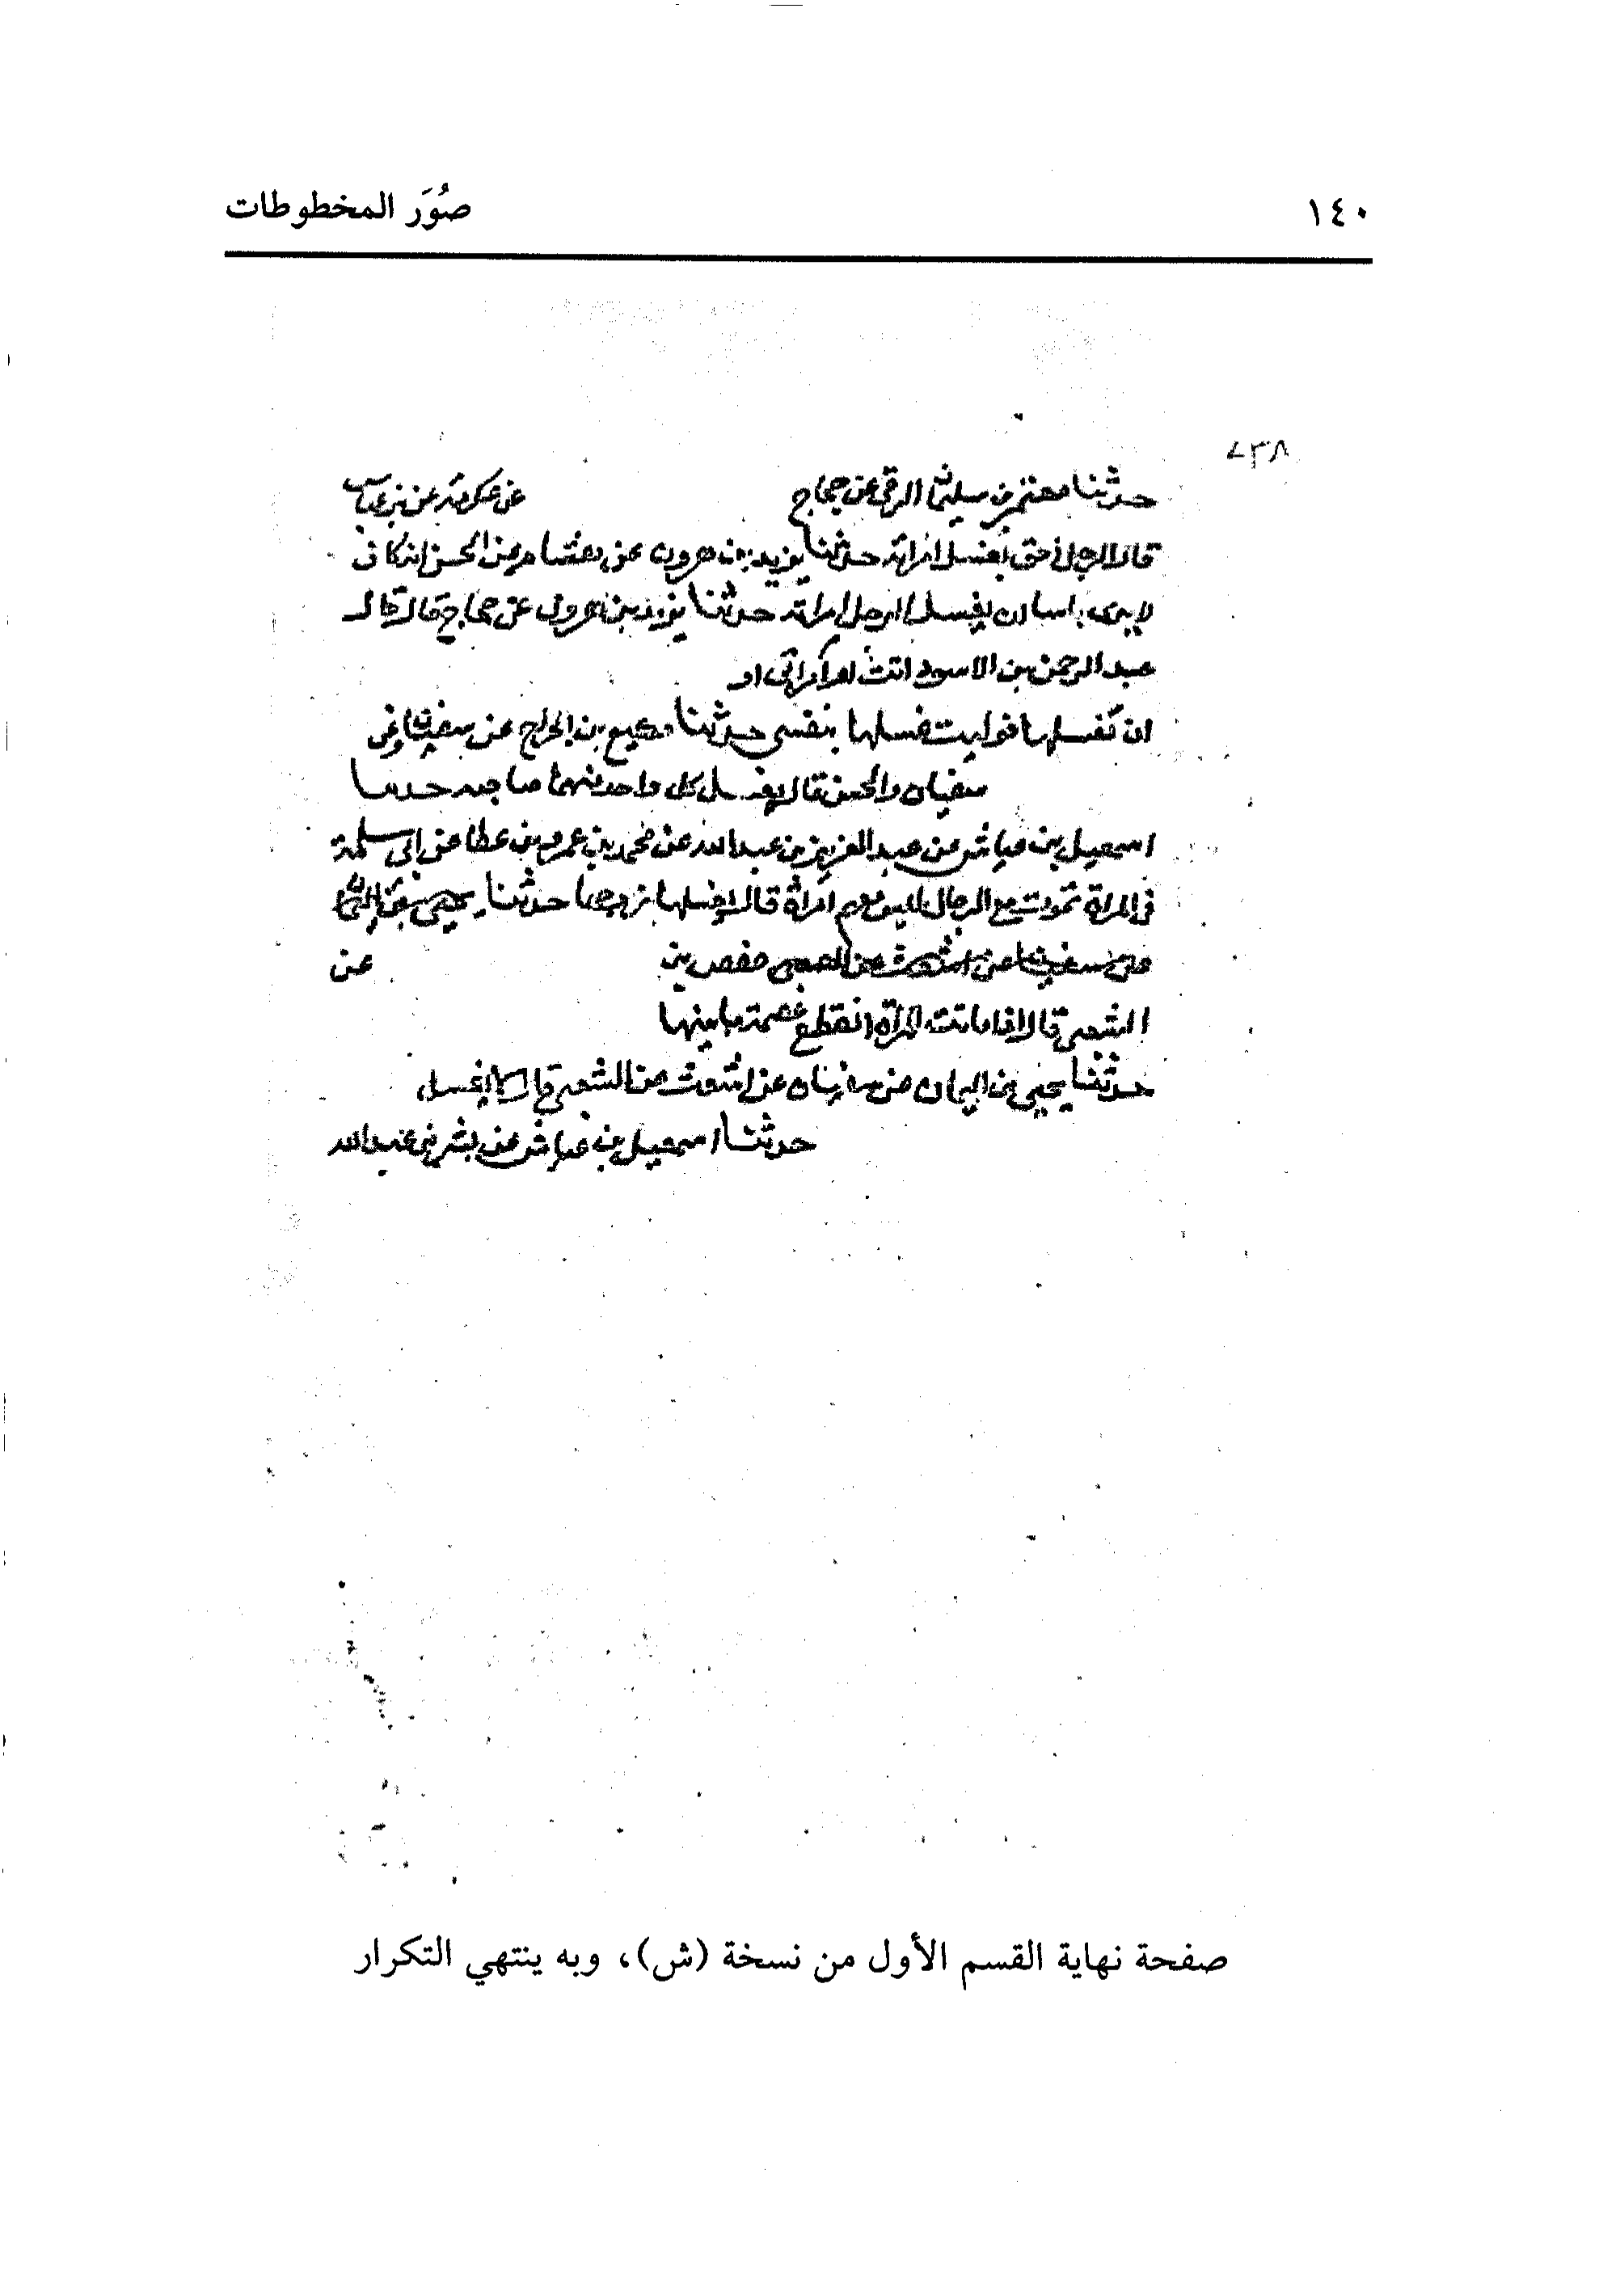 ١٤٠
صُوَر المخطوطات
٢٣٨
حدثنا معتمر بن سليمان الرقى عن حجاج عن عكرمة عن بن عباس
قال الرجل احق بغسل امراته حدثنا يزيد بن هرون عن هشام عن الحسن انه كان
لا يرى باسا ان يغسل الرجل امراته حدثنا يزيد بن هرون عن حجاج قال قال
عبد الرحمن بن الاسود ابت امراتى او
ان تغسلها فوليت غسلها بنفسى حدثنا وكيع بن الجراح عن سفيان عن
سفيان والحسن قال يغسل كل واحد منهما صاحبه حدثنا
اسمعيل بن عياش عن عبد العزيز بن عبد الله عن محمد بن عمرو بن عطا عن ابى سلمة
فى المراة تموت مع الرجال ليس معهم امراة قال يغسلها زوجها حدثنا يحيى بن
عن سفيان عن اشعث عن حفص بن عن
الشعبى قال اذا ماتت المراة انقطع عصمة ما بينها
حدثنا يحيى بن اليمان عن سفيان عن اشعث عن الشعبى قال لا يغسل
حدثنا اسمعيل بن عياش عن بشر بن عبد الله
صفحة نهاية القسم الأول من نسخة (ش)، وبه ينتهي التكرار